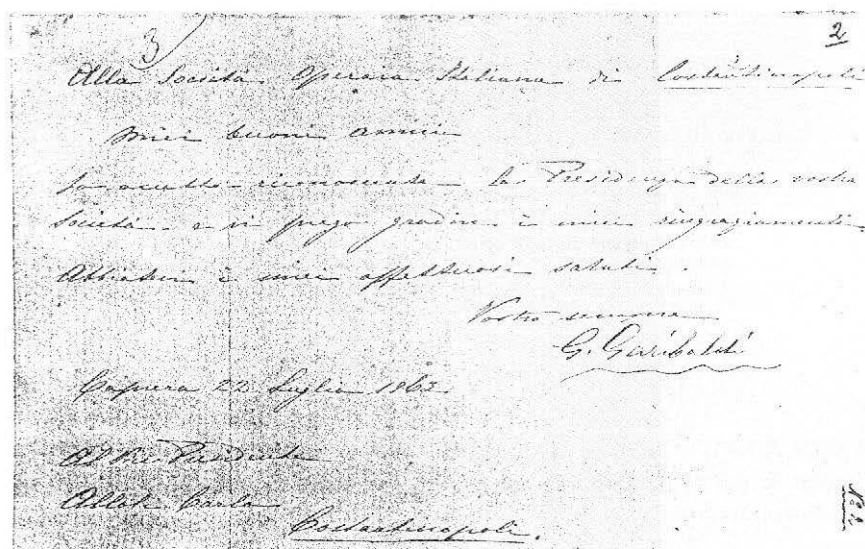 3
2
Alla Società Operaia Italiana di Costantinopoli
Miei buoni amici
Io accetto riconoscente la Presidenza della vostra
Società e vi prego gradire i miei ringraziamenti.
Abbiatevi i miei affettuosi saluti.
Vostro sempre
G. Garibaldi
Caprera 22 Luglio 1863
Al Vice Presidente
Carlo
Costantinopoli.